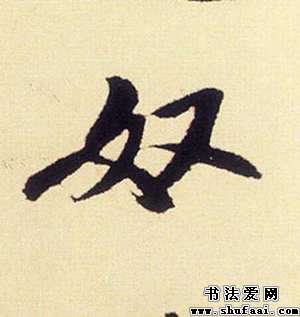 奴
书法爱网
www.shufaai.com